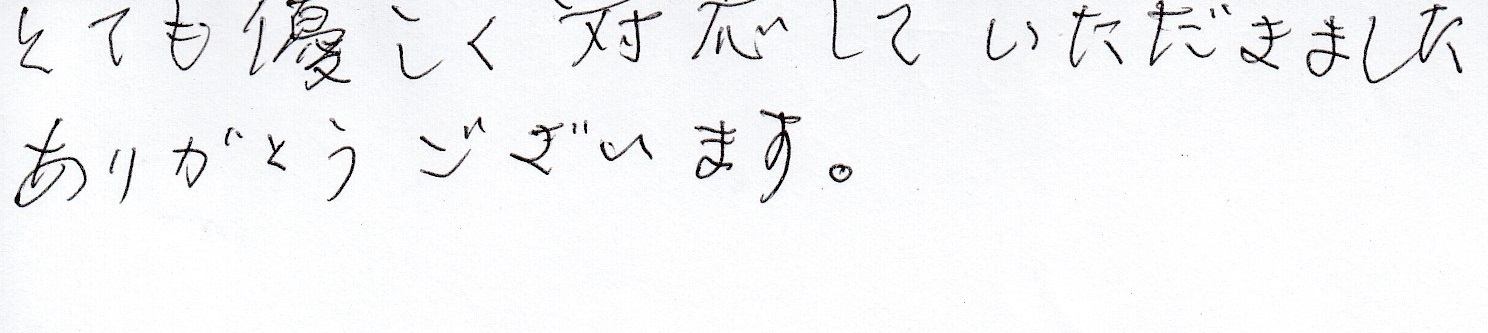 とても優しく対応していただきました
ありがとうございます。